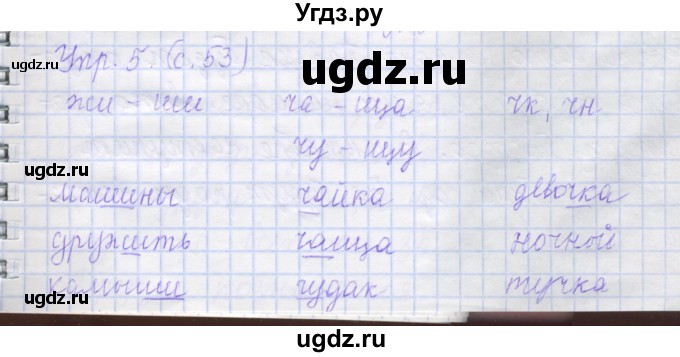 Угдз.ру
Упр. 5. (с. 53)
ugdz.ru
жи - ши ча - ща чк, чн
чу - щу
ugdz.ru
машины чайка девочка
ugdz.ru
дружить чаща ночной
ugdz.ru
камыши чудак тучка
ugdz.ru
ugdz.ru